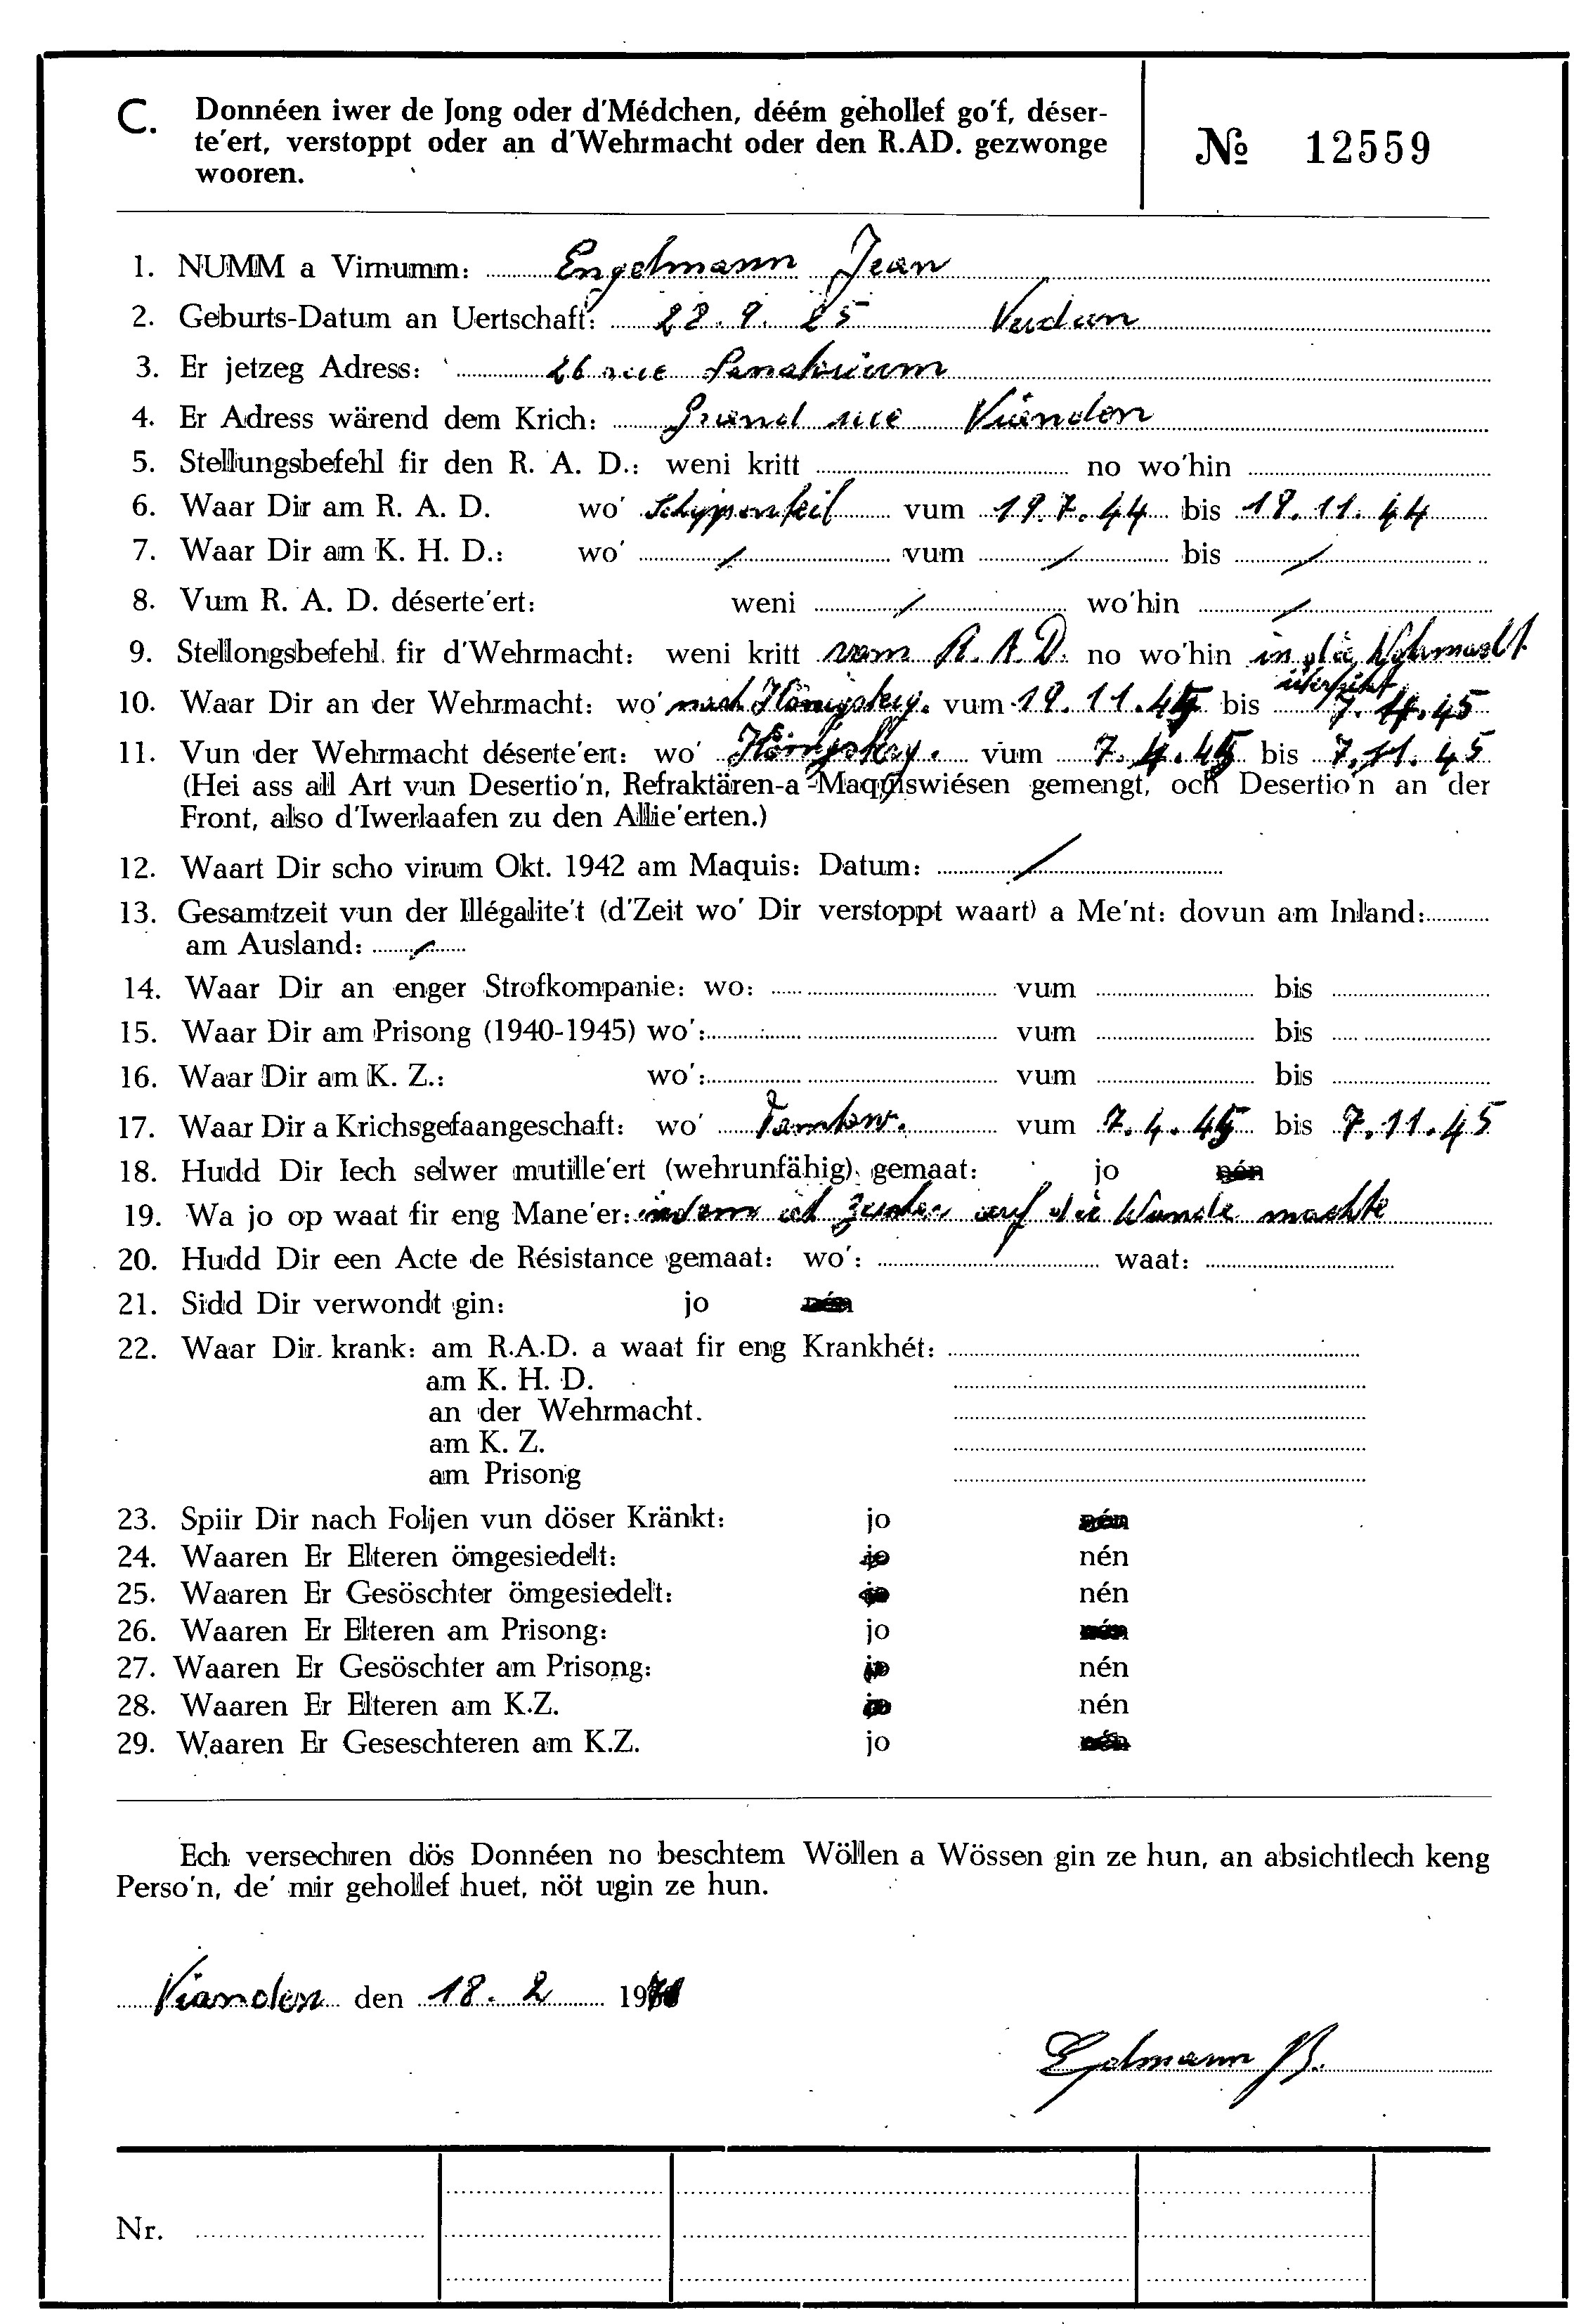 C. Donnéen iwer de Jong oder d'Médchen, déém gehollef go'f, déser-
te'ert, verstoppt oder an d'Wehrmacht oder den R.AD. gezwonge
wooren.
№ 12559
1. NUMM a Virnumm: Engelmann Jean
2. Geburts-Datum an Uertschaft: 22.9.25 Verdun
3. Er jetzeg Adress: 26 rue Sanatorium
4. Er Adress wärend dem Krich: Grand rue Vianden
5. Stellungsbefehl fir den R. A. D.: weni kritt no wo'hin
6. Waar Dir am R. A. D. wo' vum 19.7.44 bis 18.11.44
7. Waar Dir am K. H. D.: wo' / vum / bis /
8. Vum R. A. D. déserte'ert: weni / wo'hin /
9. Stellongsbefehl fir d'Wehrmacht: weni kritt vom R.A.D. no wo'hin in die Wehrmacht
10. Waar Dir an der Wehrmacht: wo' nach Königsberg. vum 19.11.45 bis 7.4.45
11. Vun der Wehrmacht déserte'ert: wo' Königsberg. vum 7.4.45 bis 7.11.45
(Hei ass all Art vun Desertio'n, Refraktären-a Maquiswiésen gemengt, och Desertio'n an der
Front, also d'Iwerlaafen zu den Allie'erten.)
12. Waart Dir scho virum Okt. 1942 am Maquis: Datum: /
13. Gesamtzeit vun der Illégalite't (d'Zeit wo' Dir verstoppt waart) a Me'nt: dovun am Inland:
am Ausland: /
14. Waar Dir an enger Strofkompanie: wo: vum bis
15. Waar Dir am Prisong (1940-1945) wo': vum bis
16. Waar Dir am K. Z.: wo': vum bis
17. Waar Dir a Krichsgefaangeschaft: wo' Tambow. vum 7.4.45 bis 7.11.45
18. Hudd Dir Iech selwer mutille'ert (wehrunfähig) gemaat: jo nén
19. Wa jo op waat fir eng Mane'er: indem ich auf die Wunde machte
20. Hudd Dir een Acte de Résistance gemaat: wo': waat:
21. Sidd Dir verwondt gin: jo nén
22. Waar Dir krank: am R.A.D. a waat fir eng Krankhét:
am K. H. D.
an der Wehrmacht.
am K. Z.
am Prisong
23. Spiir Dir nach Foljen vun döser Kränkt: jo nén
24. Waaren Er Elteren ömgesiedelt: jo nén
25. Waaren Er Gesöschter ömgesiedelt: jo nén
26. Waaren Er Elteren am Prisong: jo nén
27. Waaren Er Gesöschter am Prisong: jo nén
28. Waaren Er Elteren am K.Z. jo nén
29. Waaren Er Geseschteren am K.Z. jo nén
Ech versechren dös Donnéen no beschtem Wöllen a Wössen gin ze hun, an absichtlech keng
Perso'n, de' mir gehollef huet, nöt ugin ze hun.
Vianden den 18.2 19
Engelmann
Nr.